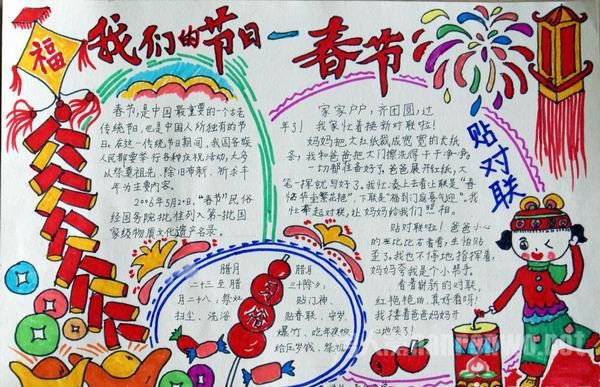 福
我们的节日—春节
春节,是中国最重要的一个古老
传统节日,也是中国人所独有的节
日。在这一传统节日期间,我国各族
人民都要举行各种庆祝活动,大多
以祭奠祖先、除旧布新、祈求丰
年为主要内容。
2006年5月20日,"春节"民俗
经国务院批准列入第一批国
家级物质文化遗产名录。
家家户户,齐团圆,过
年了!我家忙着换新对联啦!
妈妈把大红纸裁成宽宽的长纸
条,我和爸爸把大门擦洗得干干净净,
一切都准备好了。爸爸展开红纸,大
笔一挥就写好了。我忙凑上去看上联是"春
临华堂繁花艳",下联是"福到门庭喜气盈"。我
忙牵起对联,让妈妈给我们照相。
贴对联
贴对联啦!爸爸小心
的在比比方看看,生怕贴
歪了。我也不停地指挥着,
妈妈夸我是个小帮手。
看着崭新的对联,
红艳艳的,真好看呀!
我搂着爸爸妈妈开
心地笑了!
腊月
二十三至腊
月二十八:祭灶
扫尘、洗浴
习俗
腊月
三十除夕:
贴门神、
贴春联、守岁、
爆竹、吃年夜饭
给压岁钱、祭祖